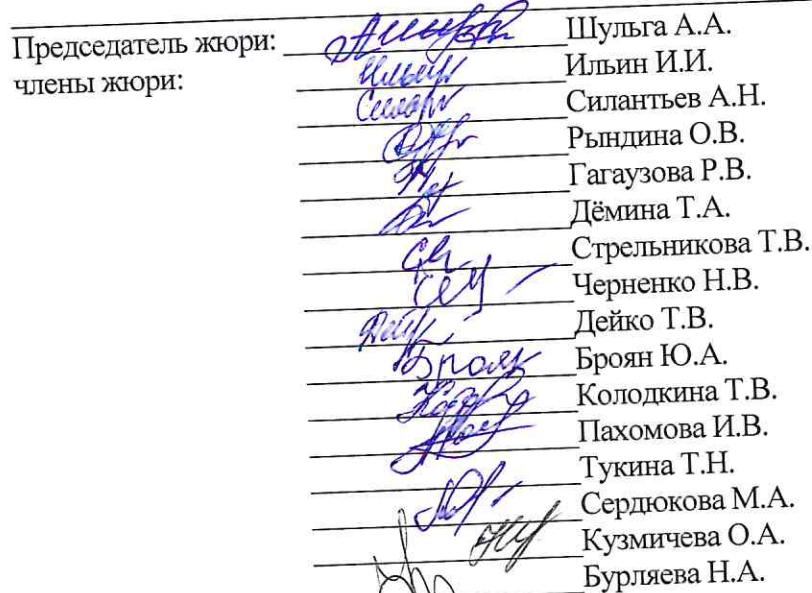 Председатель жюри: Шульга А.А.
члены жюри: Ильин И.И.
Силантьев А.Н.
Рындина О.В.
Гагаузова Р.В.
Дёмина Т.А.
Стрельникова Т.В.
Черненко Н.В.
Дейко Т.В.
Броян Ю.А.
Колодкина Т.В.
Пахомова И.В.
Тукина Т.Н.
Сердюкова М.А.
Кузмичева О.А.
Бурляева Н.А.